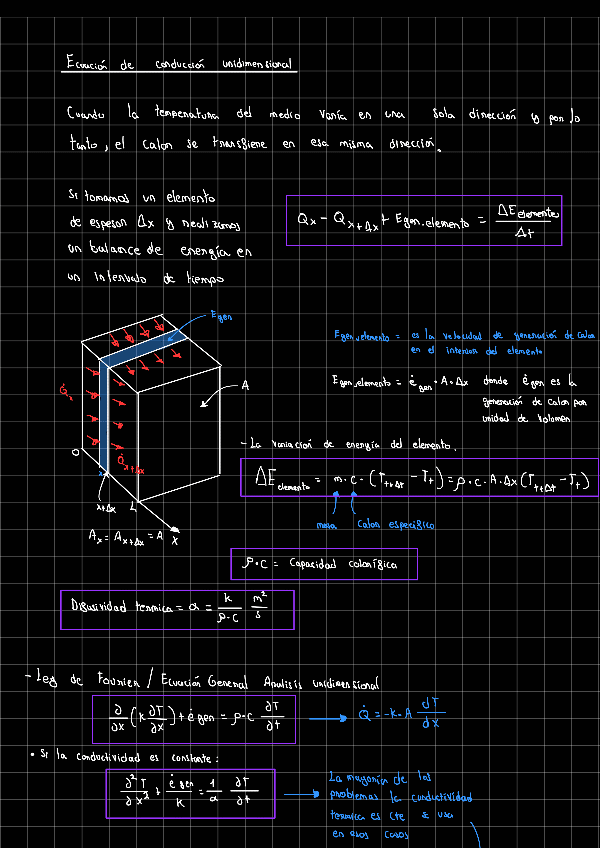 Ecuación de conducción unidimensional
Cuando la temperatura del medio varía en una sola dirección y por lo
tanto, el calor se transfiere en esa misma dirección.
Si tomamos un elemento
de espesor Δx y realizamos
un balance de energía en
un intervalo de tiempo
Qx - Qx+Δx + Egen.elemento = ΔEelemento / Δt
Egen
Q̇x
A
Q̇x+Δx
O
x
x+Δx
L
Ax = Ax+Δx = A
X
Egen,elemento = es la velocidad de generación de calor
en el interior del elemento
Egen,elemento = ėgen · A · Δx donde ėgen es la
generación de calor por
unidad de volumen
- La variación de energía del elemento.
ΔEelemento = m · c · (Tt+Δt - Tt) = ρ · c · A · Δx (Tt+Δt - Tt)
masa Calor especifico
ρ·c = Capacidad calorífica
Difusividad termica = α = k / ρ·c m² / s
- Ley de Fourier / Ecuación General Analisis unidimensional
∂/∂x (k ∂T/∂x) + ė gen = ρ·c ∂T/∂t → Q̇ = -k · A dT/dx
• Si la conductividad es constante:
∂²T/∂x² + ė gen/k = 1/α ∂T/∂t
La mayoría de los
problemas la conductividad
termica es cte & usa
en esos casos